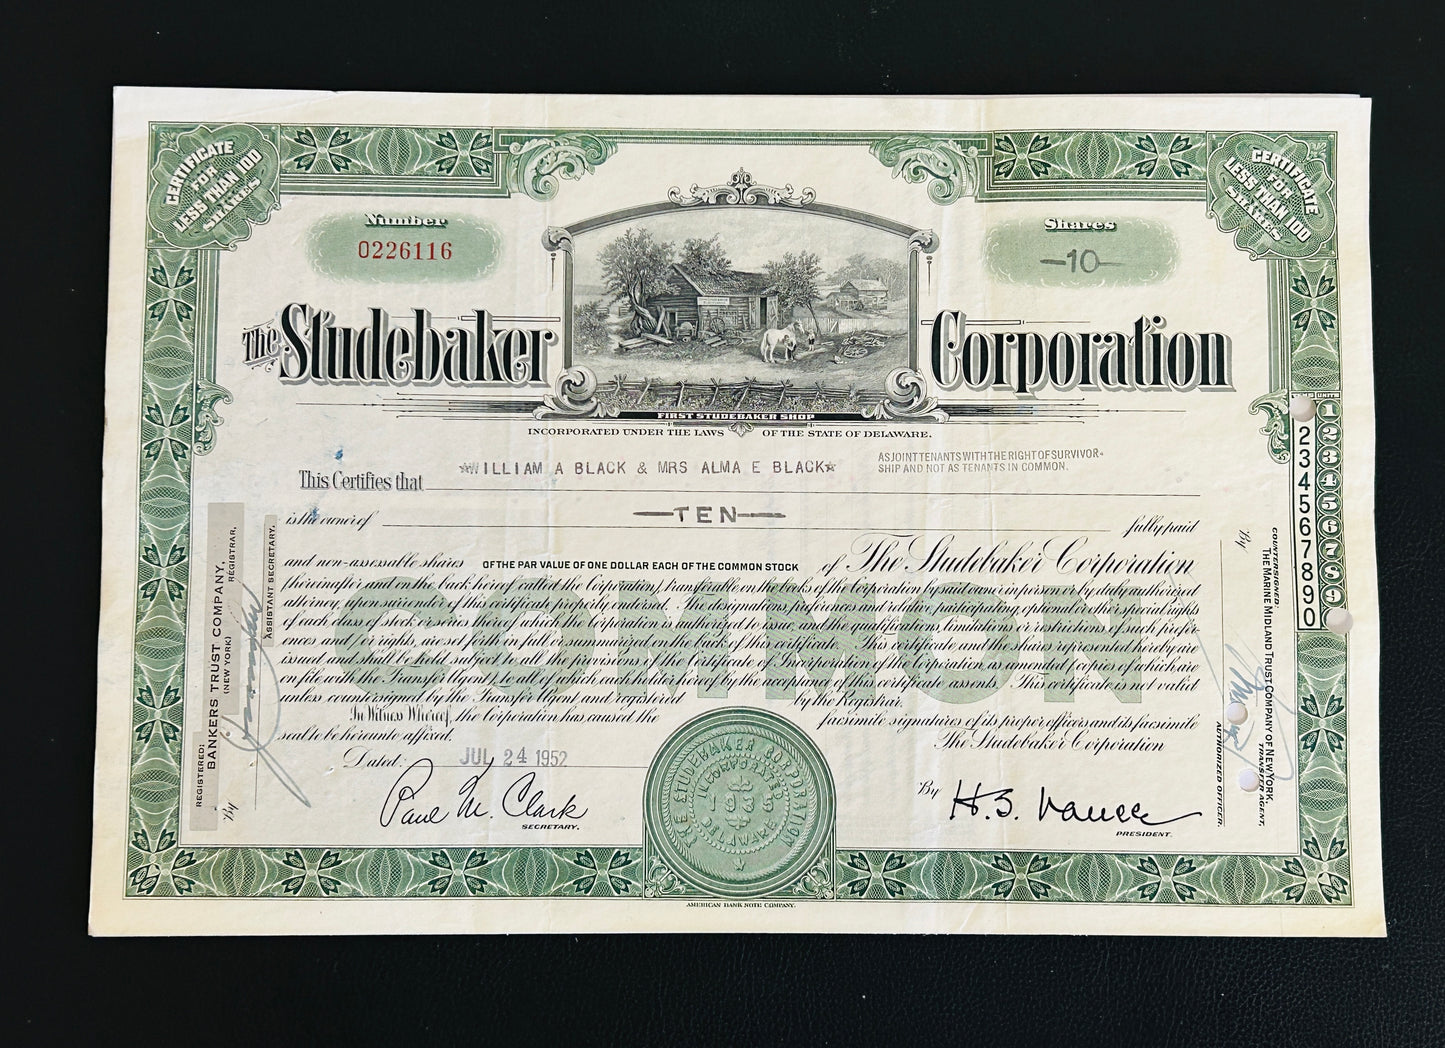 CERTIFICATE
FOR
LESS THAN 100
SHARES
CERTIFICATE
FOR
LESS THAN 100
SHARES
Number
0226116
Shares
—10—
The Studebaker Corporation
FIRST STUDEBAKER SHOP
INCORPORATED UNDER THE LAWS OF THE STATE OF DELAWARE.
This Certifies that ★WILLIAM A BLACK & MRS ALMA E BLACK★
AS JOINT TENANTS WITH THE RIGHT OF SURVIVOR-
SHIP AND NOT AS TENANTS IN COMMON.
is the owner of —TEN— fully paid
and non-assessable shares OF THE PAR VALUE OF ONE DOLLAR EACH OF THE COMMON STOCK of The Studebaker Corporation
(hereinafter and on the back hereof called the Corporation), transferable on the books of the Corporation by said owner in person or by duly authorized
attorney, upon surrender of this certificate properly endorsed. The designations, preferences and relative, participating, optional or other special rights
of each class of stock or series thereof which the Corporation is authorized to issue, and the qualifications, limitations or restrictions of such prefer-
ences and/or rights, are set forth in full or summarized on the back of this certificate. This certificate and the shares represented hereby are
issued and shall be held subject to all the provisions of the Certificate of Incorporation of the Corporation, as amended (copies of which are
on file with the Transfer Agent), to all of which each holder hereof by the acceptance of this certificate assents. This certificate is not valid
unless countersigned by the Transfer Agent and registered by the Registrar.
In Witness Whereof, the Corporation has caused the facsimile signatures of its proper officers and its facsimile
seal to be hereunto affixed.
COMMON
The Studebaker Corporation
Dated: JUL 24 1952
Paul M. Clark
SECRETARY.
By H.S. Vance
PRESIDENT.
THE STUDEBAKER CORPORATION
INCORPORATED
1935
DELAWARE
AMERICAN BANK NOTE COMPANY.
REGISTERED:
BANKERS TRUST COMPANY,
(NEW YORK) REGISTRAR,
By
ASSISTANT SECRETARY.
COUNTERSIGNED:
THE MARINE MIDLAND TRUST COMPANY OF NEW YORK,
TRANSFER AGENT,
By
AUTHORIZED OFFICER.
TENS UNITS
1
2 2
3 3
4 4
5 5
6 6
7 7
8 8
9 9
0